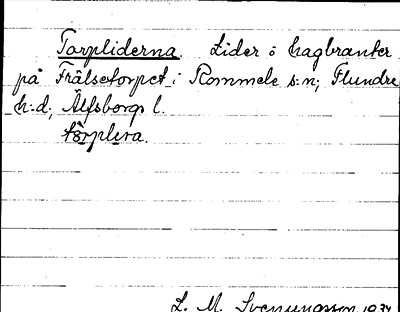 Torpliderna. Lider o hagbranter
på Frälsetorpet i Rommele s:n; Flundre
h:d; Älfsborgs l.
torplira.
L. M. Svenungsson 1934